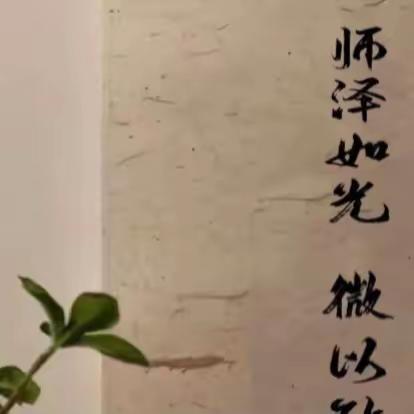 师泽如光 微以